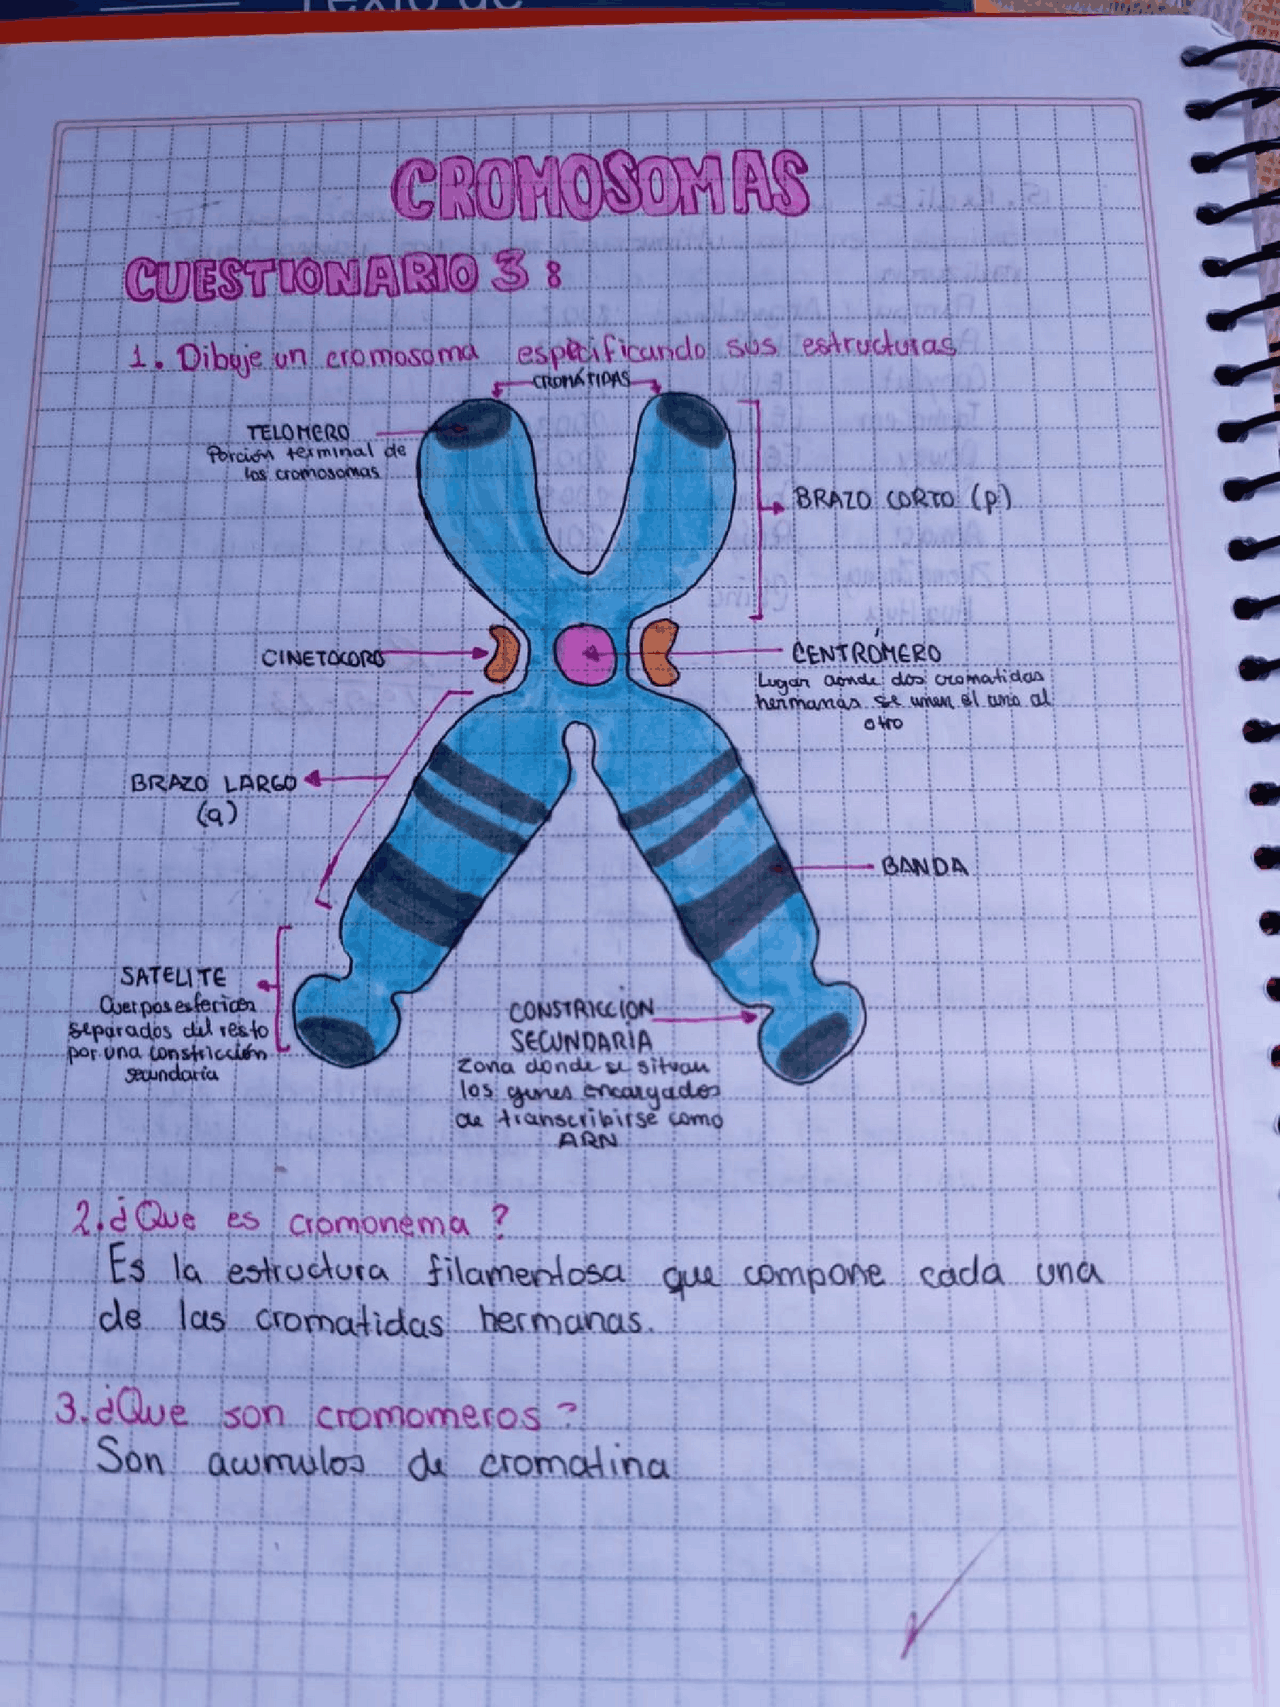 Texto de
CROMOSOMAS
CUESTIONARIO 3:
1. Dibuje un cromosoma especificando sus estructuras
CROMÁTIDAS
TELOMERO
Porción terminal de
los cromosomas
BRAZO CORTO (p)
CINETOCORO
CENTRÓMERO
Lugar donde dos cromatidas
hermanas se unen el uno al
otro
BRAZO LARGO
(q)
BANDA
SATELITE
Cuerpos esfericos
separados del resto
por una constricción
secundaria
CONSTRICCIÓN
SECUNDARIA
Zona donde se situan
los genes encargados
de transcribirse como
ARN
2. ¿Que es cromonema?
Es la estructura filamentosa que compone cada una
de las cromatidas hermanas.
3. ¿Que son cromomeros?
Son acumulos de cromatina